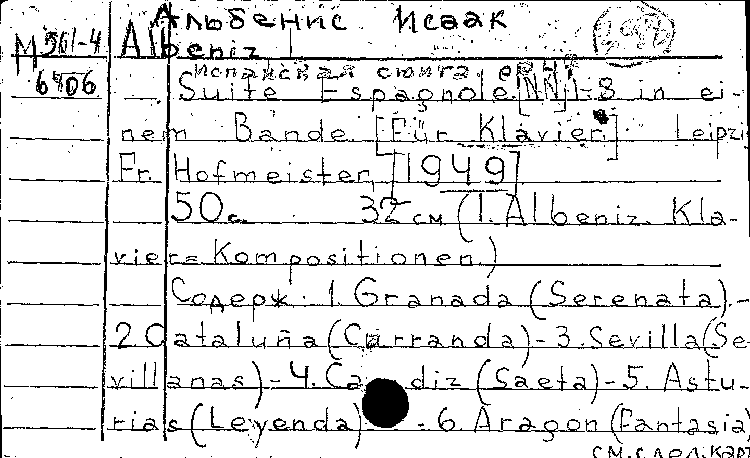 Альбенис Исаак
М 561-4 Albeniz
6406 испанская сюита
Suite Espagnole. [NN] 1-8 in ei-
nem Bande. [Für Klavier]. Leipzig
Fr. Hofmeister, [1949]
50 с. 32 см (I. Albeniz. Kla-
vier=Kompositionen.)
Содерж.: 1. Granada (Serenata).-
2. Cataluña (Curranda)-3. Sevilla (Se-
villanas)-4. Ca diz (Saeta)-5. Astu-
rias (Leyenda) -6. Aragon (Fantasia)
см. след. карт